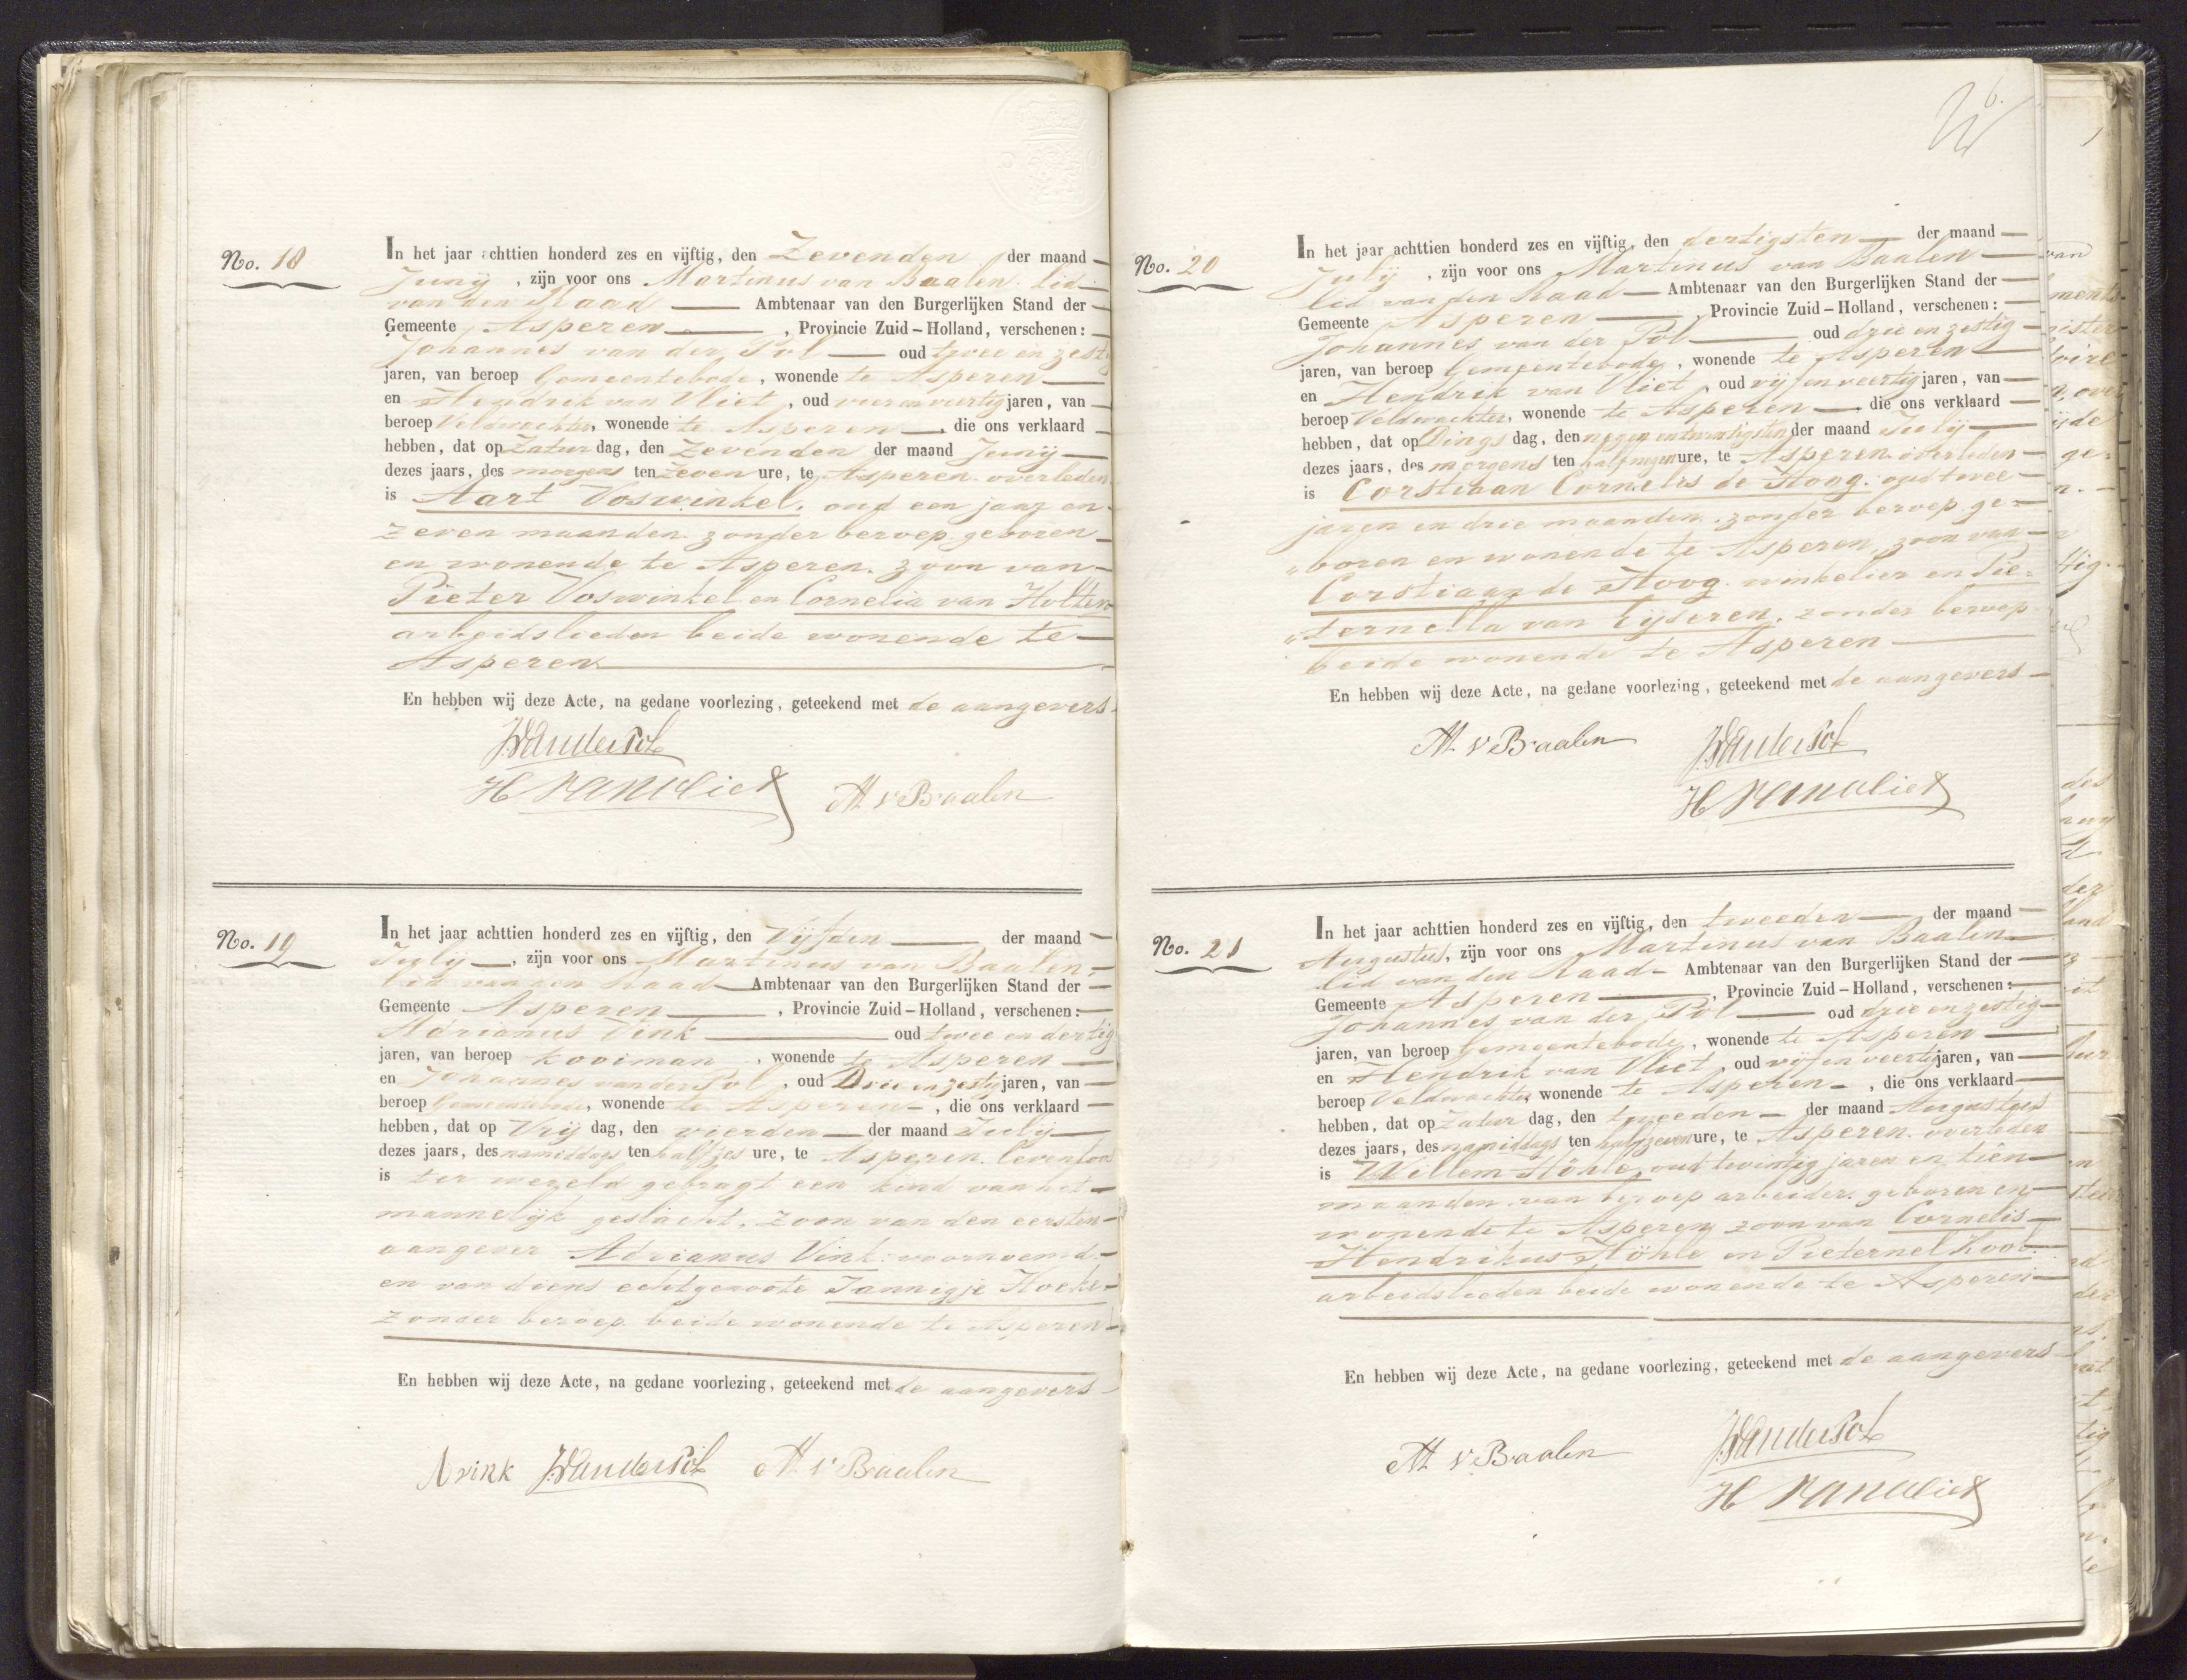 No. 18
In het jaar achttien honderd zes en vijftig, den Zevenden der maand
Junij, zijn voor ons Martinus van Baalen. lid
van den Raad Ambtenaar van den Burgerlijken Stand der
Gemeente Asperen, Provincie Zuid-Holland, verschenen:
Johannes van der Pol oud twee en zestig
jaren, van beroep Gemeentebode, wonende te Asperen
en Hendrik van Vliet, oud vier en veertig jaren, van
beroep Veldwachter, wonende te Asperen, die ons verklaard
hebben, dat op Zatur dag, den Zevenden der maand Junij
dezes jaars, des morgens ten Zeven ure, te Asperen. overleden
is Aart Voswinkel. oud een jaar en
zeven maanden. zonder beroep. geboren
en wonende te Asperen. zoon van
Pieter Voswinkel en Cornelia van Holten
arbeidslieden beide wonende te
Asperen
En hebben wij deze Acte, na gedane voorlezing, geteekend met de aangevers.
J. Vanderpol
H van vliet M v Baalen
No. 19
In het jaar achttien honderd zes en vijftig, den Vijfden der maand
July, zijn voor ons Martinus van Baalen,
lid van den Raad Ambtenaar van den Burgerlijken Stand der
Gemeente Asperen, Provincie Zuid-Holland, verschenen:
Adrianus Vink oud twee en dertig
jaren, van beroep kooiman, wonende te Asperen
en Johannes van der Pol, oud Drie en zestig jaren, van
beroep Gemeentebode, wonende te Asperen, die ons verklaard
hebben, dat op Vrij dag, den vierden der maand July
dezes jaars, des namiddags ten half zes ure, te Asperen. levenloos
is ter wereld gebragt een kind van het
mannelijk geslacht. zoon van den eersten
aangever Adrianus Vink. voornoemd
en van diens echtgenoote Jannigje Hoeke
zonder beroep. beide wonende te Asperen
En hebben wij deze Acte, na gedane voorlezing, geteekend met de aangevers
A vink J. Vanderpol M v Baalen
No. 20
In het jaar achttien honderd zes en vijftig, den dertigsten der maand
July, zijn voor ons Martinus van Baalen
lid van den Raad Ambtenaar van den Burgerlijken Stand der
Gemeente Asperen, Provincie Zuid-Holland, verschenen:
Johannes van der Pol oud drie en zestig
jaren, van beroep Gemeentebode, wonende te Asperen
en Hendrik van Vliet, oud vijf en veertig jaren, van
beroep Veldwachter, wonende te Asperen die ons verklaard
hebben, dat op Dings dag, den negen en twintigsten der maand July
dezes jaars, des morgens ten half negen ure, te Asperen. overleden
is Corstiaan Cornelis de Hoog. oud twee
jaren en drie maanden. zonder beroep. ge=
"boren en wonende te Asperen, zoon van
Corstiaan de Hoog. winkelier en Pie=
"ternella van Eijseren. zonder beroep
beide wonende te Asperen
En hebben wij deze Acte, na gedane voorlezing, geteekend met de aangevers
M v Baalen J. Vanderpol
H van vliet
No. 21
In het jaar achttien honderd zes en vijftig, den tweeden der maand
Augustus, zijn voor ons Martinus van Baalen
lid van den Raad Ambtenaar van den Burgerlijken Stand der
Gemeente Asperen, Provincie Zuid-Holland, verschenen:
Johannes van der Pol oud drie en zestig
jaren, van beroep Gemeentebode, wonende te Asperen
en Hendrik van Vliet, oud vijf en veertig jaren, van
beroep Veldwachter wonende te Asperen, die ons verklaard
hebben, dat op Zatur dag, den tweeden der maand Augustus
dezes jaars, des namiddags ten half zeven ure, te Asperen. overleden
is Willem Höhle, oud twintig jaren en tien
maanden. van beroep arbeider. geboren en
wonende te Asperen, zoon van Cornelis
Hendrikus Höhle en Pieternel Kool
arbeidslieden beide wonende te Asperen
En hebben wij deze Acte, na gedane voorlezing, geteekend met de aangevers
M v Baalen J. Vanderpol
H van vliet